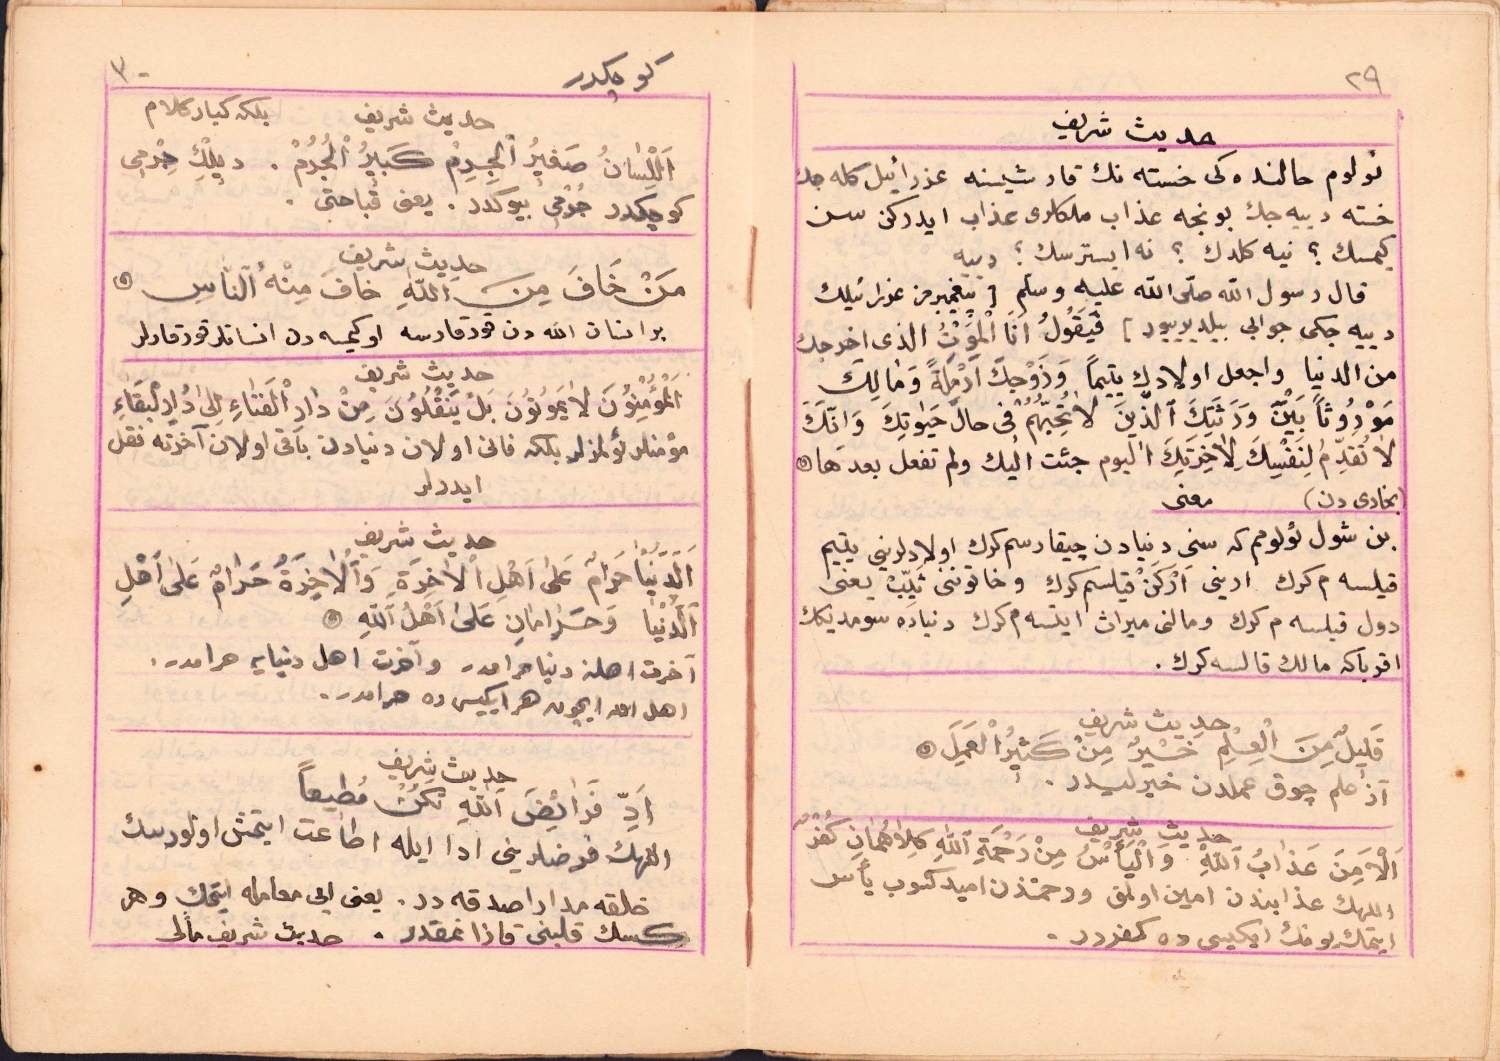 ٢٩
حديث شريف
ئولوم حالنده كى خسته نك قارشيسنه عذرائيل كله جك
خسته دييه جك بونجه عذاب ملكلرى عذاب ايدركن سن
كيمسك ؟ نيه كلدك ؟ نه ايسترسك ؟ دييه
قال رسول الله صلّى الله عليه وسلّم [ پيغمبرمز عزرائيلك
دييه جكى جوابى بيلديرييور ] فَيَقُولُ اَنَا الْمَوْتُ الذى اخرجك
من الدنيا واجعل اولادك يتيماً وَزَوْجِكَ اَرْمِلَةً وَمَالِكَ
مَوْرُوثاً بَيْنَ وَرَثَتِكَ الَّذِينَ لَا تُحِبُّهُمْ فى حال حَيَوتِكَ وَاِنَّكَ
لَا تُقَدِّمْ لِنَفْسِكَ لِاٰخِرَتِكَ اليوم جئت اليك ولم تفعل بعدها
(بخارى دن) معنى
بن شول ئولومم كه سنى دنيادن چيقارسم كرك اولادلرينى يتيم
قيلسه م كرك ارينى اَرْكَنْ قيلسم كرك و خاتوننى ثَيِّبْ يعنى
دول قيلسه م كرك ومالنى ميراث ايتسه م كرك دنياده سومديكك
اقرباكه مالك قالسه كرك .
حديث شريف
قَلِيلٌ مِنَ الْعِلْمِ خَيْرٌ مِنْ كَثِيرُ الْعَمَلَ
آز علم چوق عملدن خيرليدر .
حديث شريف
اَلْاَمِنَ عَذَابُ اللهِ وَالْيَأْسُ مِنْ رَحْمَةِ اللهِ كِلَاهُمَانِ كُفْرٌ
اللهك عذابندن امين اولمق ورحمتندن اميد كسوب يأس
ايتمك بونك ايكيسى ده كفردر .
٣٠
كوچكدر
حديث شريف بلكه كبار كلام
اَللِّسَانُ صَغِيرُ الْجِرِمْ كَبِيرُ الْجُرُمْ . ديلك جِرْمى
كوچكدر جُرْمى بيوكدر . يعنى قباحتى .
حديث شريف
مَنْ خَافَ مِنَ اللهِ خَافَ مِنْهُ النَّاسِ
بر انسان الله دن قورقارسه او كيمسه دن انسانلر قورقارلر
حديث شريف
اَلْمُؤْمِنُونَ لَا يَمُوتُونَ بَلْ يَنْقُلُونَ مِنْ دَارِ الْفَنَاءِ اِلَى دَارِ الْبَقَاءِ
مؤمنلر ئولمزلر بلكه فانى اولان دنيادن باقى اولان آخرته نقل
ايدرلر
حديث شريف
اَلدُّنْيَا حَرَامٌ عَلَى اَهْلِ الْاٰخِرَةِ وَالْاٰخِرَةُ حَرَامٌ عَلَى اَهْلِ
الدُّنْيَا وَحَرَامَانِ عَلَى اَهْلُ اللهِ
آخرت اهلنه دنيا حرامدر وآخرت اهل دنيايه حرامدر .
اهل الله ايچون هر ايكيسى ده حرامدر .
حديث شريف
اَدِّ فَرَائِضَ اللهِ تَكُنْ مُطِيعاً
اللهك فرضلرينى ادا ايله اطاعت ايتمش اولورسك
خلقه مدارا صدقه در . يعنى ايى معامله ايتمك وهر
كسك قلبنى قازانمقدر . حديث شريف مآلى